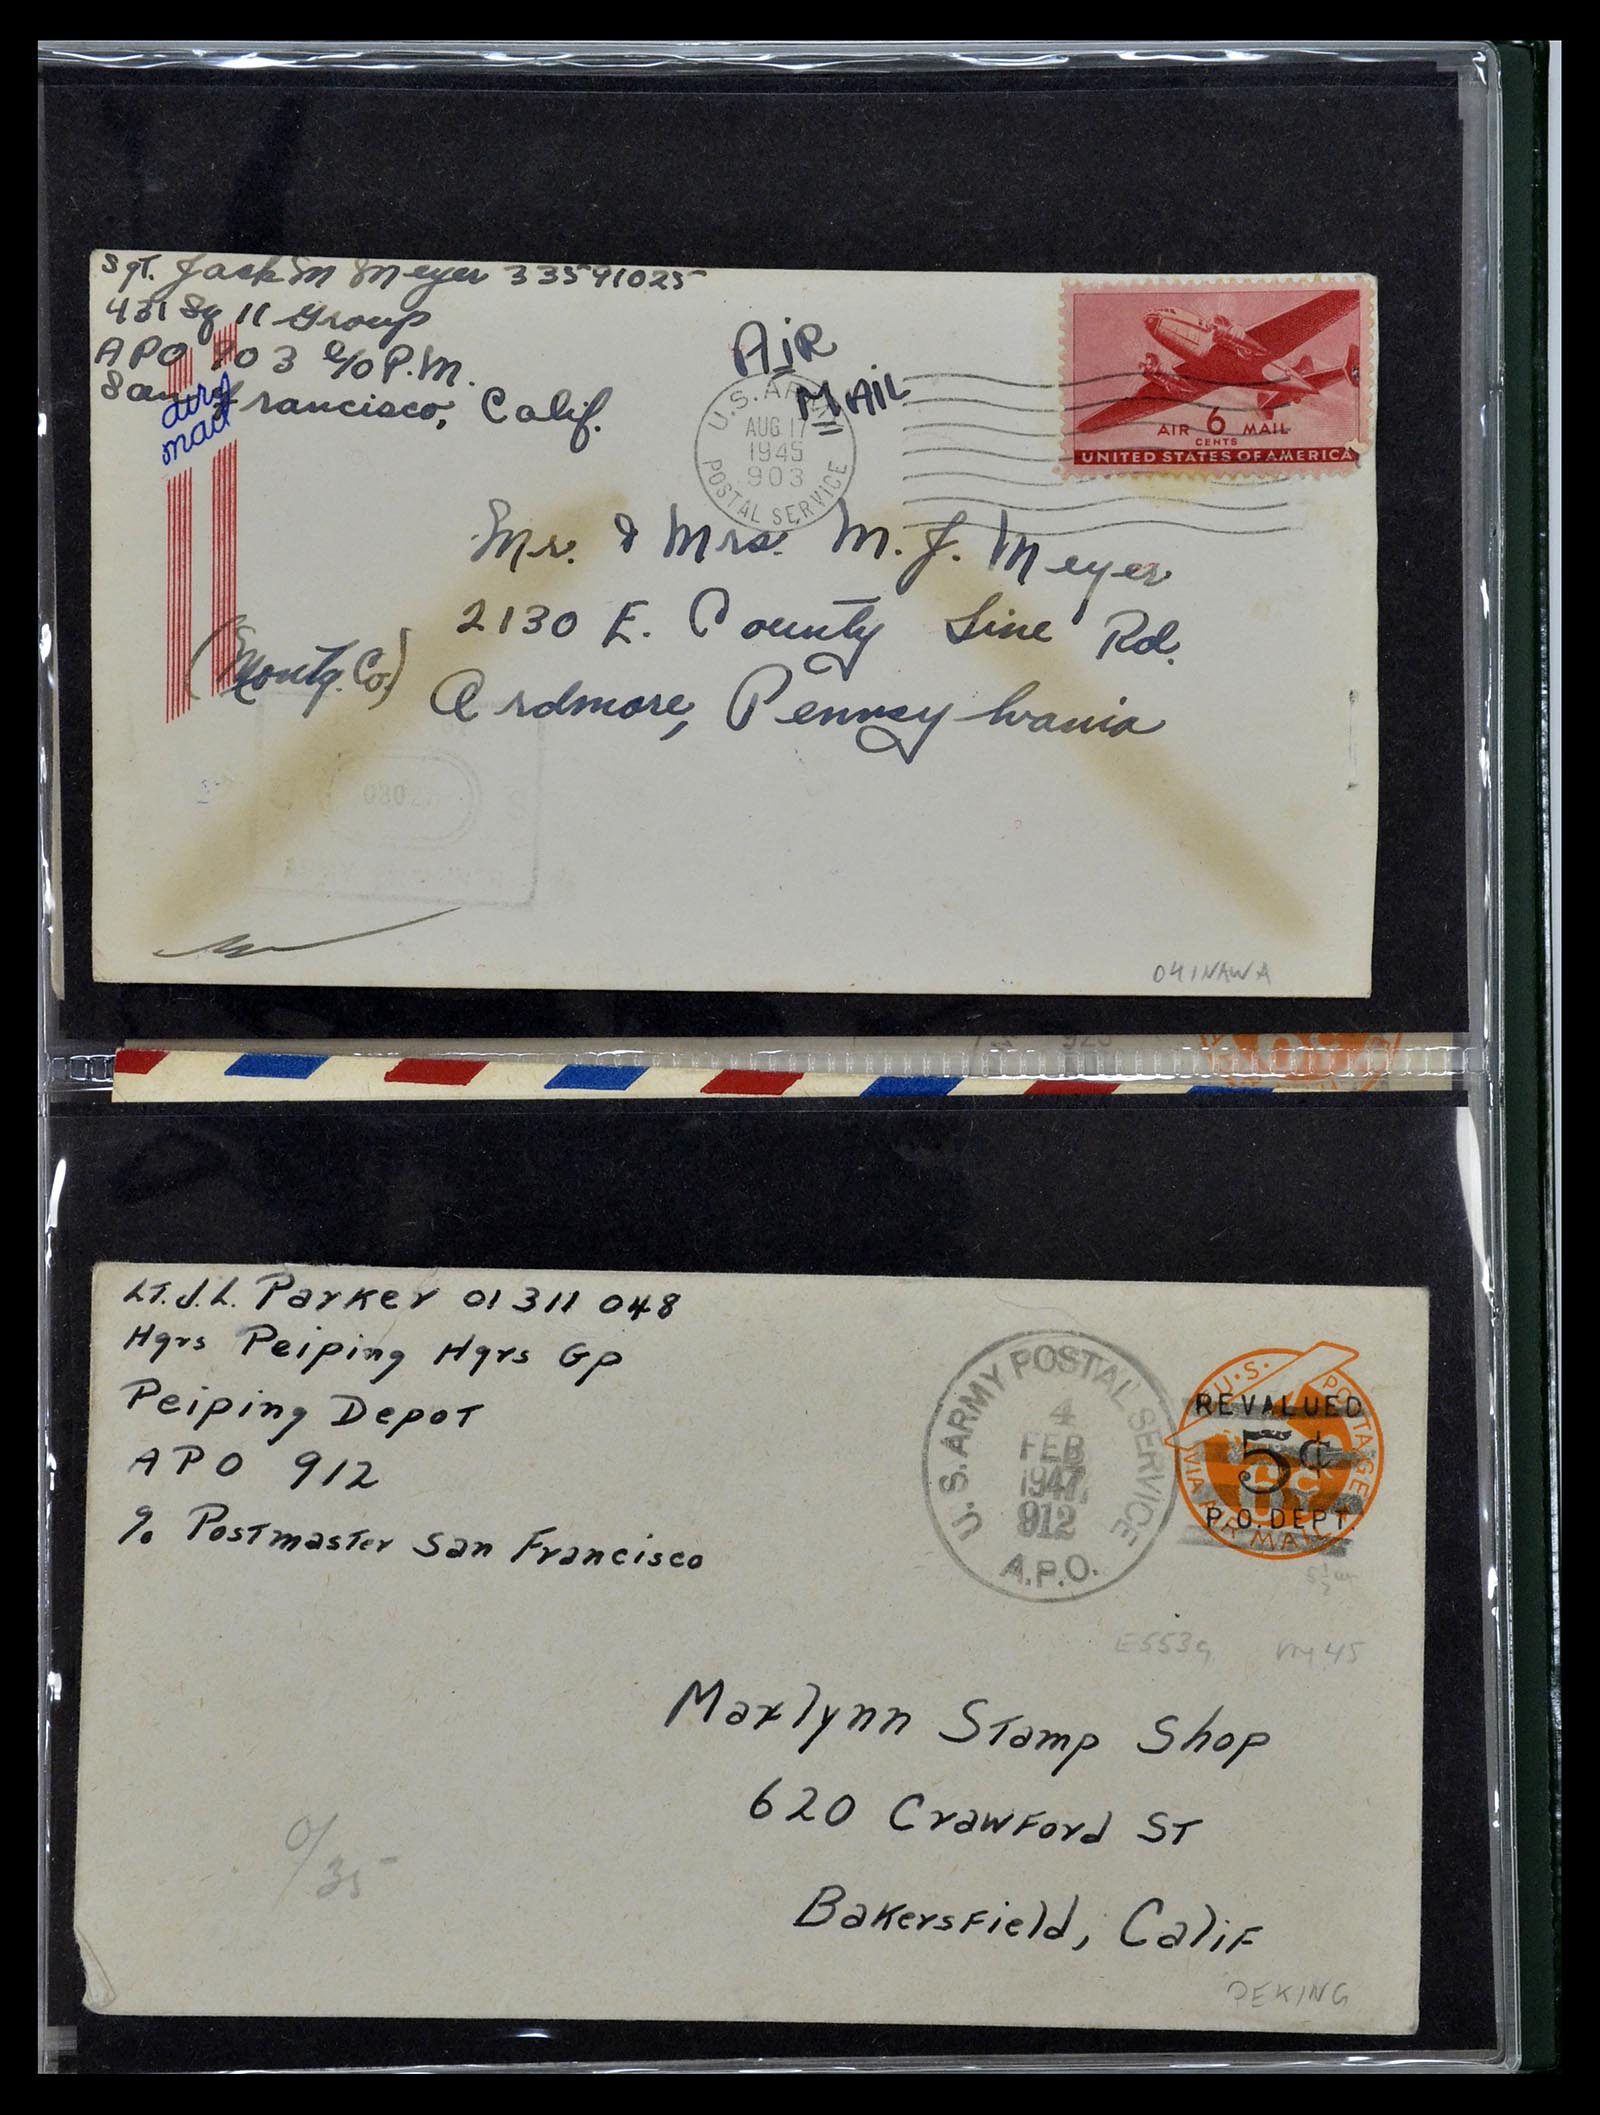 Sgt. Jack M Meyer 33591025
431 Sq 11 Group
APO 903 c/o P.M.
San Francisco, Calif.
air mail
AiR
MAiL
U.S. ARMY
AUG 17
1945
903
POSTAL SERVICE
AIR 6 MAIL
CENTS
UNITED STATES OF AMERICA
Mr. & Mrs. M. J. Meyer
2130 E. County Line Rd.
(Montg. Co.)
Ardmore, Pennsylvania
OKINAWA
Lt. J. L. Parker 01 311 048
Hqrs Peiping Hqrs Gp
Peiping Depot
APO 912
c/o Postmaster San Francisco
U.S. ARMY POSTAL SERVICE
4
FEB
1947
912
A.P.O.
U.S. POSTAGE
REVALUED
5¢
P.O. DEPT.
VIA AIR MAIL
Marlynn Stamp Shop
620 Crawford St
Bakersfield, Calif
O/35-
PEKING